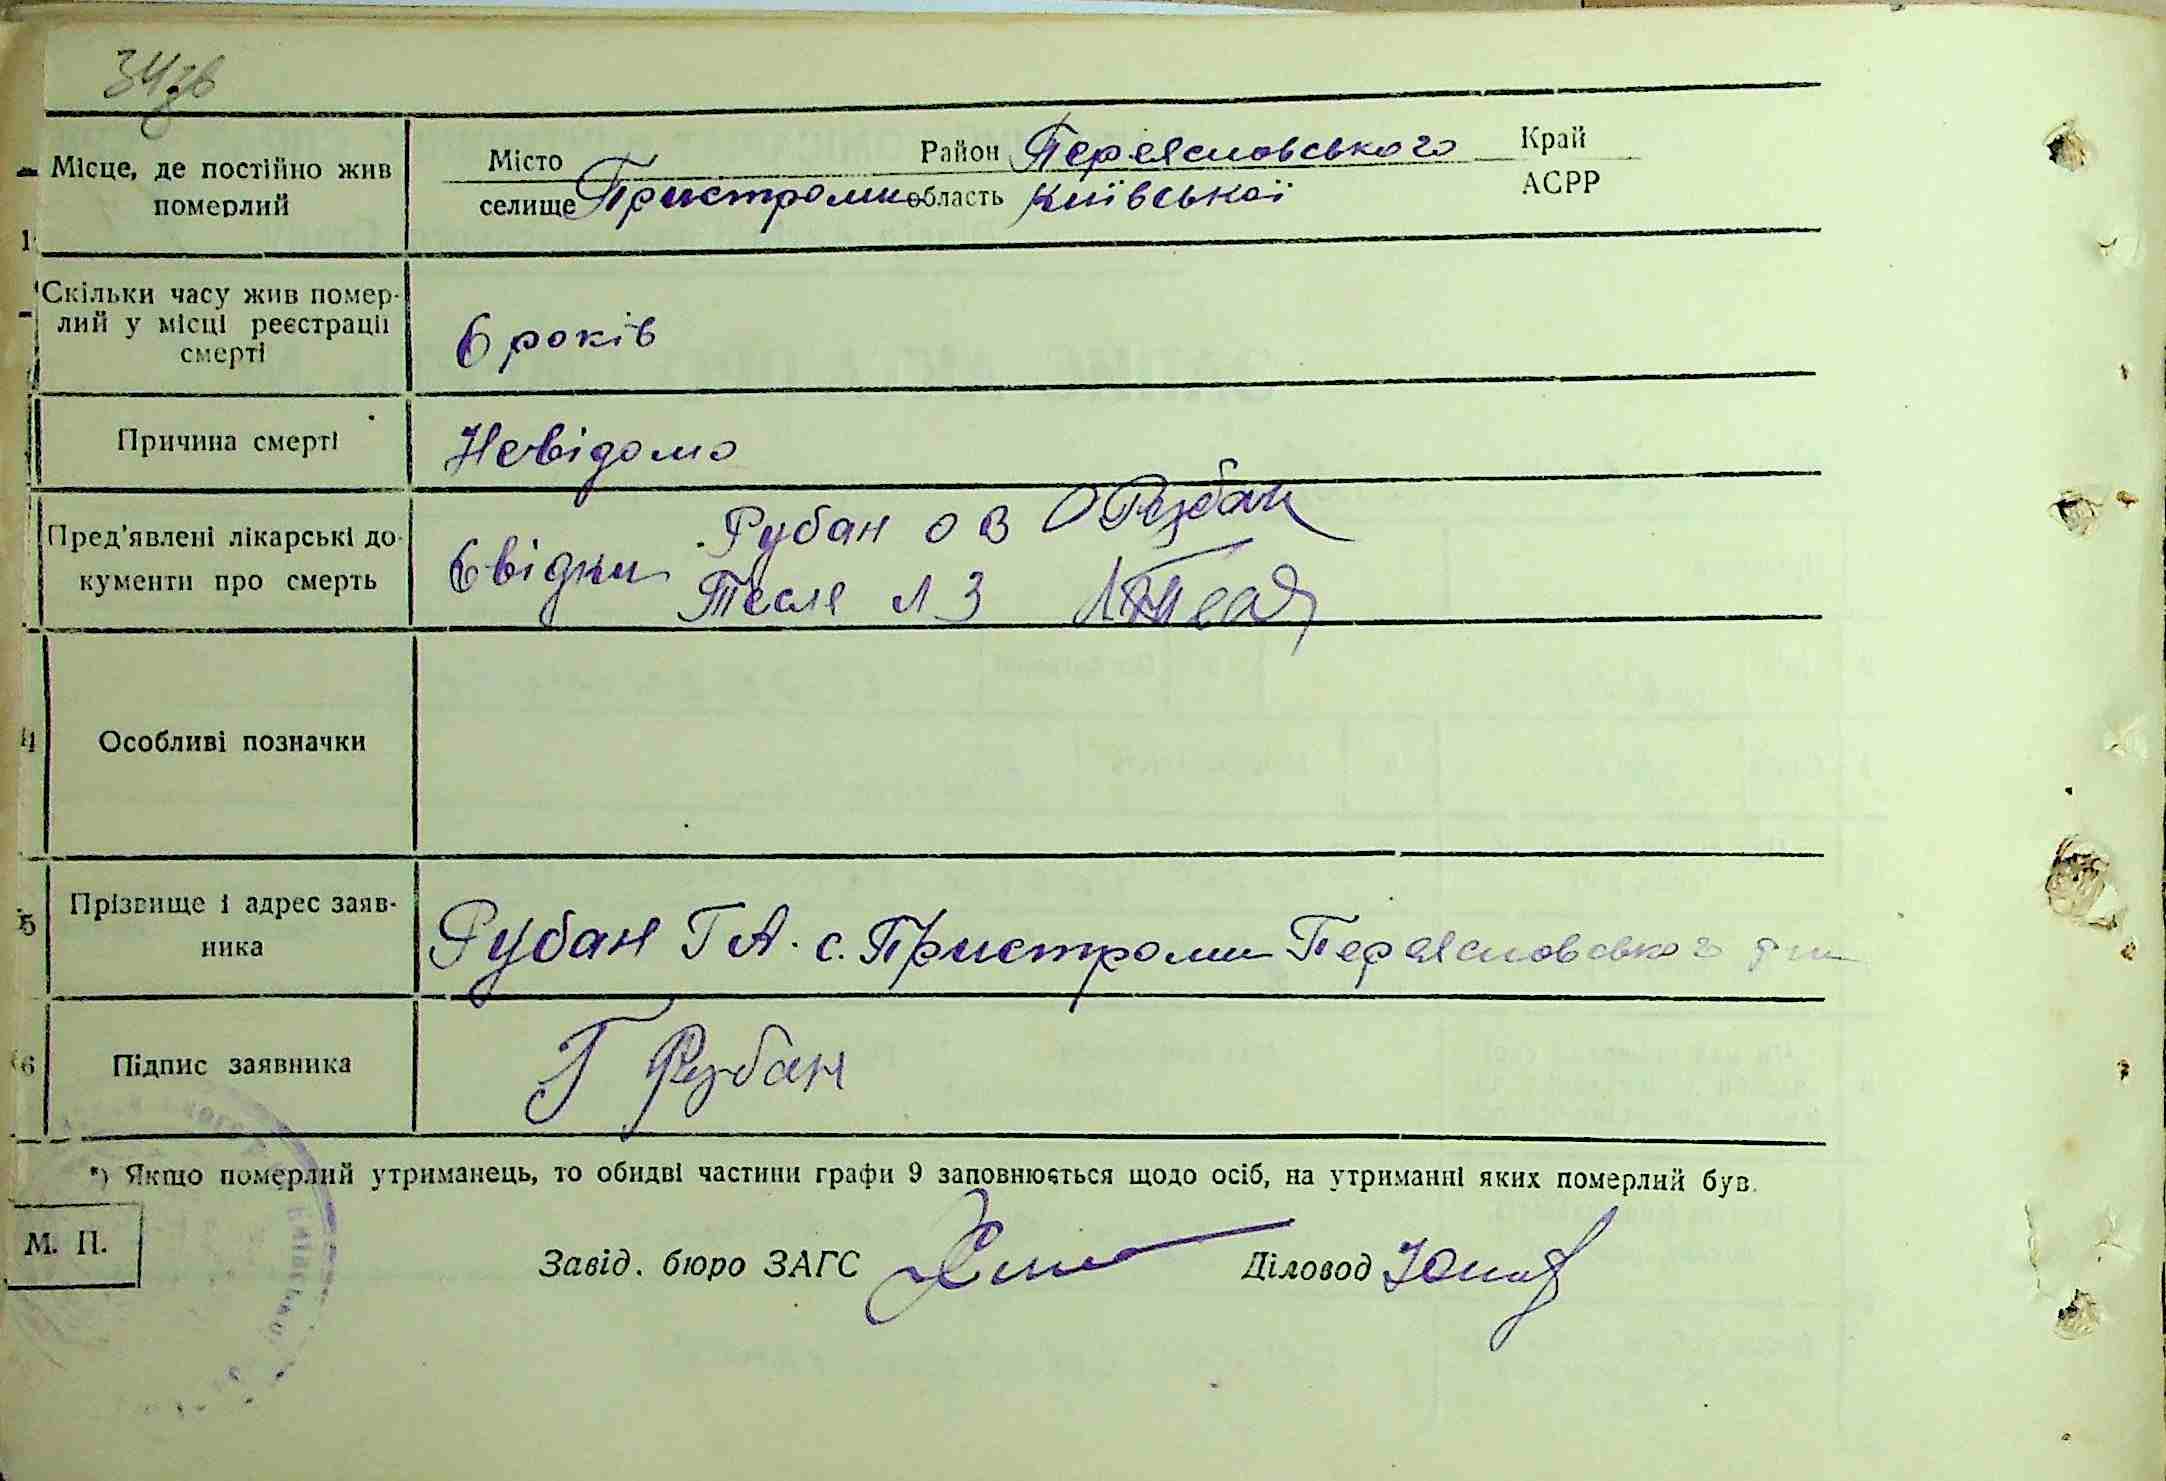 34зв
Місце, де постійно жив
померлий
Місто
селище Пристроми
Район Переясловського
область Київської
Край
АСРР
Скільки часу жив помер-
лий у місці реєстрації
смерті
6 років
Причина смерті
Невідомо
Пред'явлені лікарські до-
кументи про смерть
Свідки Рубан О В ОРубан
Тесля Л З
Особливі позначки
5
Прізвище і адрес заяв-
ника
Рубан Г А. с. Пристроми Переясловського р-ну
6
Підпис заявника
Г Рубан
*) Якщо померлий утриманець, то обидві частини графи 9 заповнюється щодо осіб, на утриманні яких померлий був.
М. П.
Завід. бюро ЗАГС
Діловод